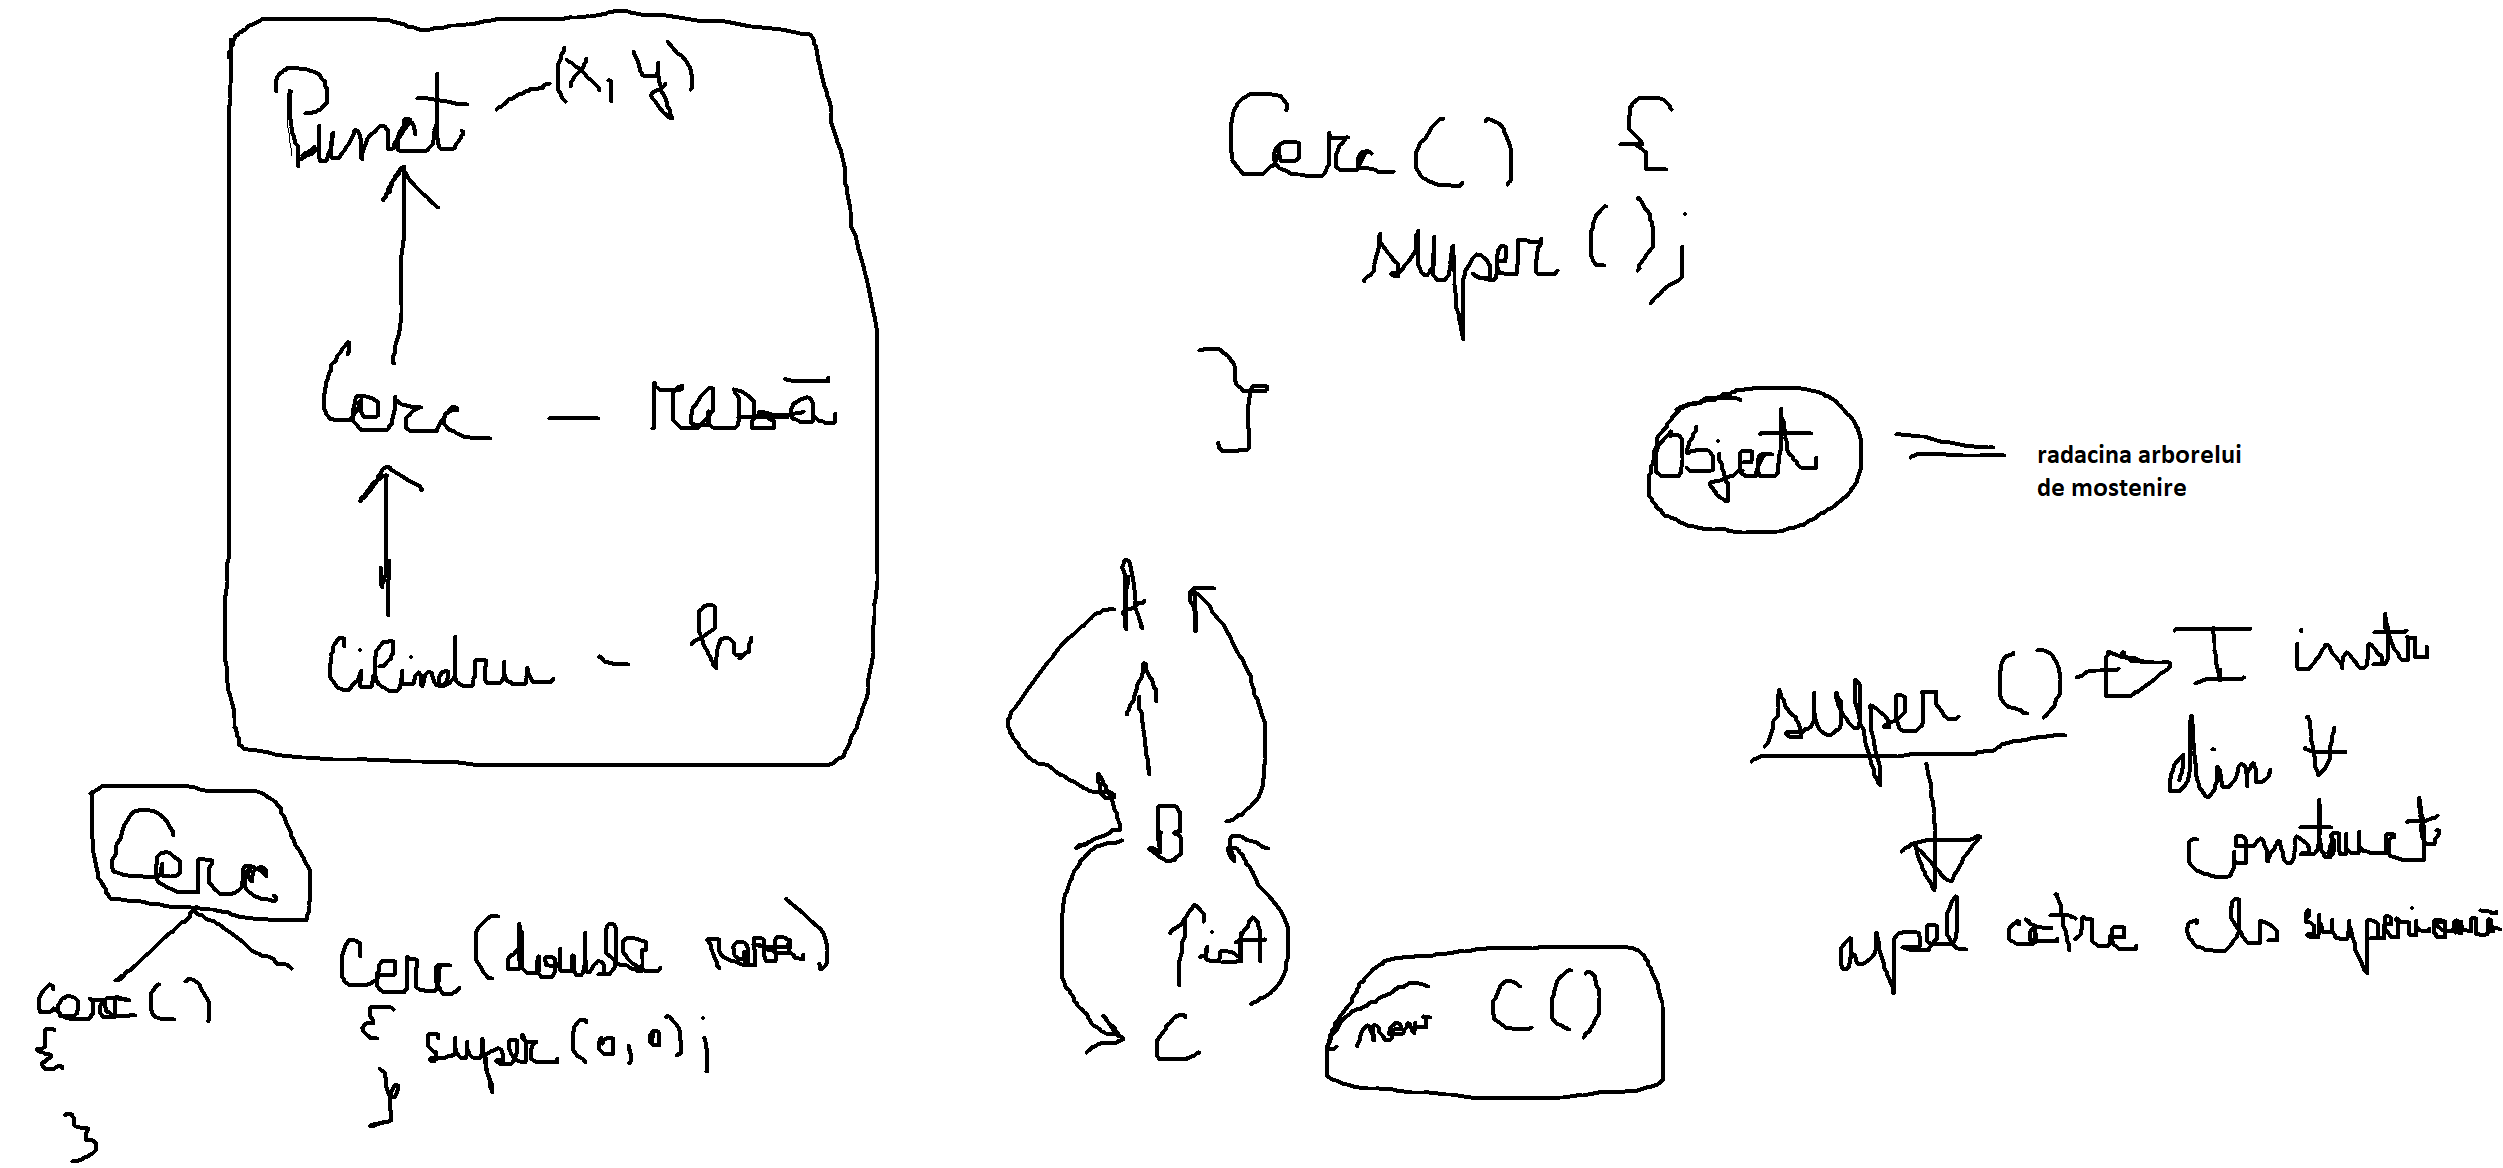 Punct (x, y)
Cerc — rază
Cilindru — h
Cerc
Cerc()
{
}
Cerc (double raza)
{
super (0,0);
}
Cerc() {
super();
}
Object
radacina arborelui
de mostenire
A
B
C
new C()
super() I instr
din ∀
construct
apel catre cls superioară